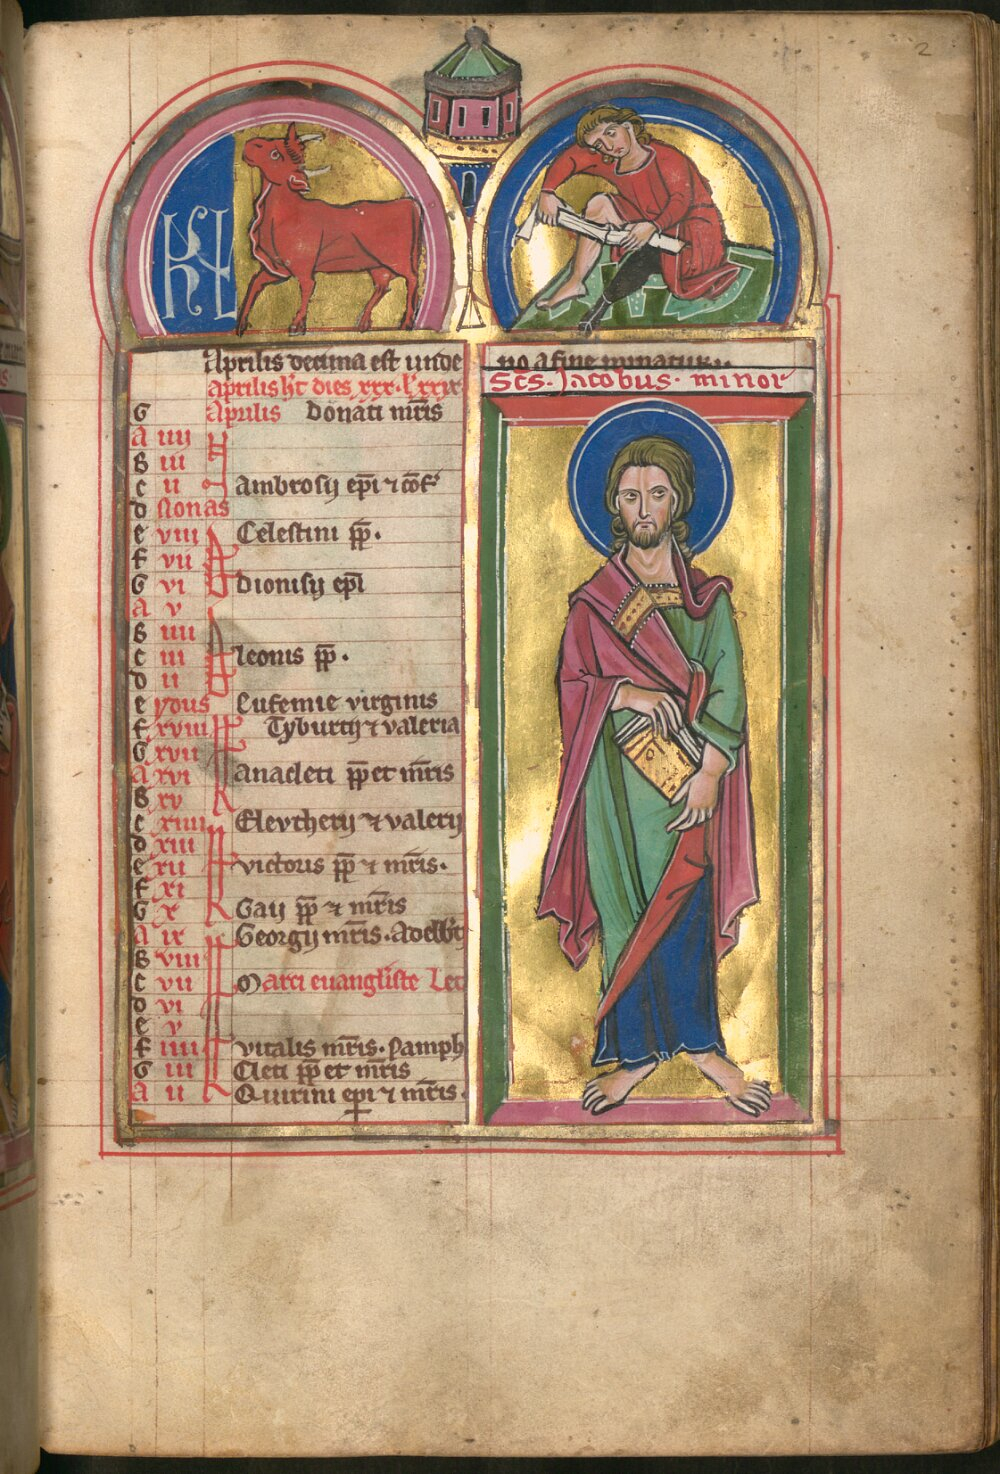 2
KL
Aprilis decima est unde
no a fine minatur
Aprilis ht dies xxx l xxix
Scs Jacobus minor
G Aprilis Donati mris
A iiii
B iii
c ii Ambrosij epi ⁊ cof
d Nonas
e viii Celestini pp.
f vii
G vi Dionisij epi
A v
B iiii
c iii Leonis pp.
d ii
e ydus Eufemie virginis
f xviii Tyburtij ⁊ valeria
G xvii
A xvi Anacleti pp et mris
B xv
c xiiii Elevtherij ⁊ valerij
d xiii
e xii victoris pp ⁊ mris.
f xi
G x Gaij pp ⁊ mris
A ix Georgij mris. Adelb
B viii
c vii Marci euangliste Le
d vi
e v
f iiii vitalis mris. Pamph
G iii Cleti pp et mris
A ii Quirini epi ⁊ mris.